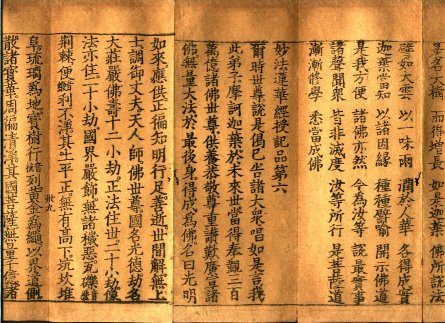 是名大樹　而得增長　如是迦葉　佛所說法
譬如大雲　以一味雨　潤於人華　各得成實
迦葉當知　以諸因緣　種種譬喻　開示佛道
是我方便　諸佛亦然　今為汝等　說最實事
諸聲聞衆　皆非滅度　汝等所行　是菩薩道
漸漸修學　悉當成佛
妙法蓮華經授記品第六
爾時世尊說是偈已告諸大衆唱如是言我
此弟子摩訶迦葉於未來世當得奉覲三百
萬億諸佛世尊供養恭敬尊重讚歎廣宣諸
佛無量大法於最後身得成為佛名曰光明
如來應供正徧知明行足善逝世間解無上
士調御丈夫天人師佛世尊國名光德劫名
大莊嚴佛壽十二小劫正法住世二十小劫像
法亦住二十小劫國界嚴飾無諸穢惡瓦礫
荊棘便利不淨其土平正無有高下坑坎堆
阜琉璃為地寶樹行列黃金為繩以界道側
散諸寶華周徧清淨其國菩薩無量千億諸